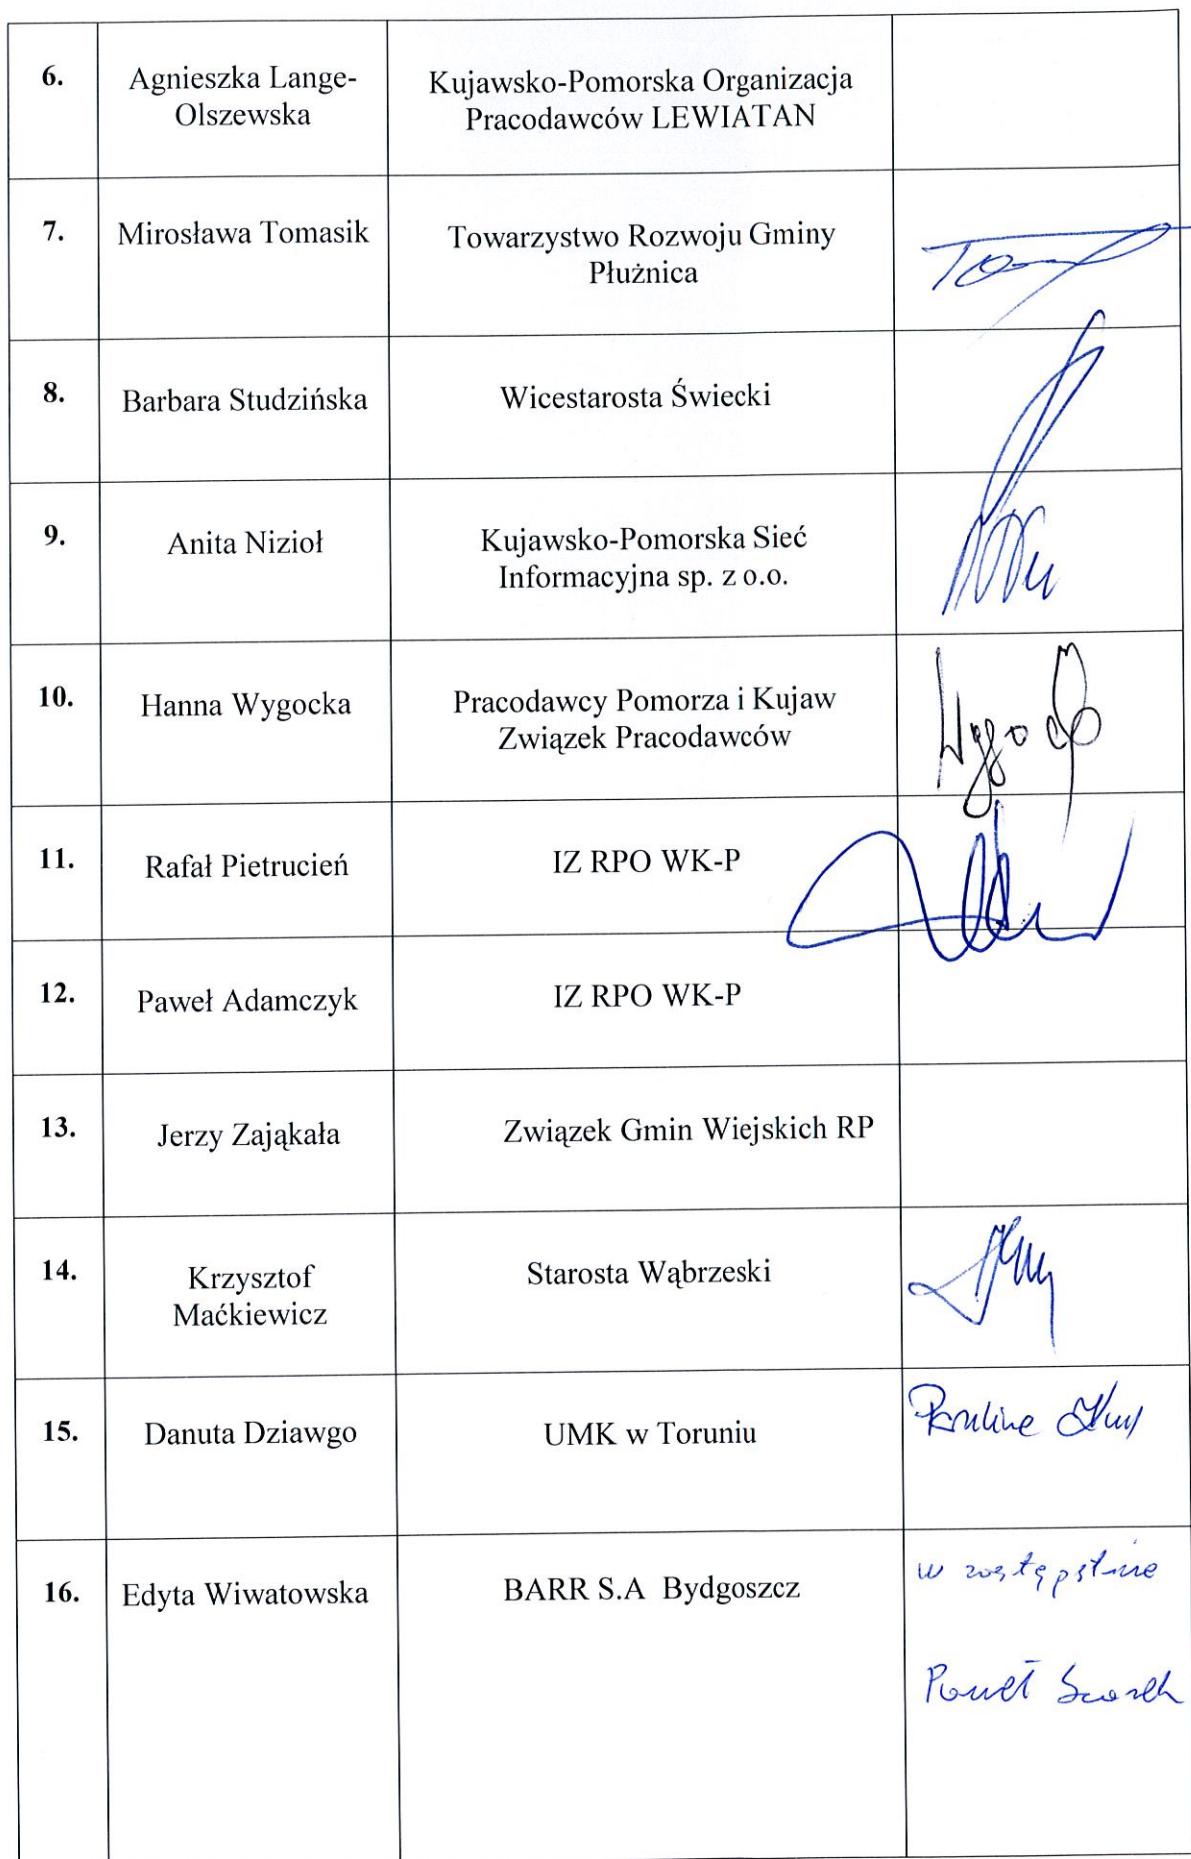 6.
Agnieszka Lange-
Olszewska
Kujawsko-Pomorska Organizacja
Pracodawców LEWIATAN
7.
Mirosława Tomasik
Towarzystwo Rozwoju Gminy
Płużnica
8.
Barbara Studzińska
Wicestarosta Świecki
9.
Anita Nizioł
Kujawsko-Pomorska Sieć
Informacyjna sp. z o.o.
10.
Hanna Wygocka
Pracodawcy Pomorza i Kujaw
Związek Pracodawców
11.
Rafał Pietrucień
IZ RPO WK-P
12.
Paweł Adamczyk
IZ RPO WK-P
13.
Jerzy Zająkała
Związek Gmin Wiejskich RP
14.
Krzysztof
Maćkiewicz
Starosta Wąbrzeski
15.
Danuta Dziawgo
UMK w Toruniu
16.
Edyta Wiwatowska
BARR S.A Bydgoszcz
w zastępstwie
Paweł